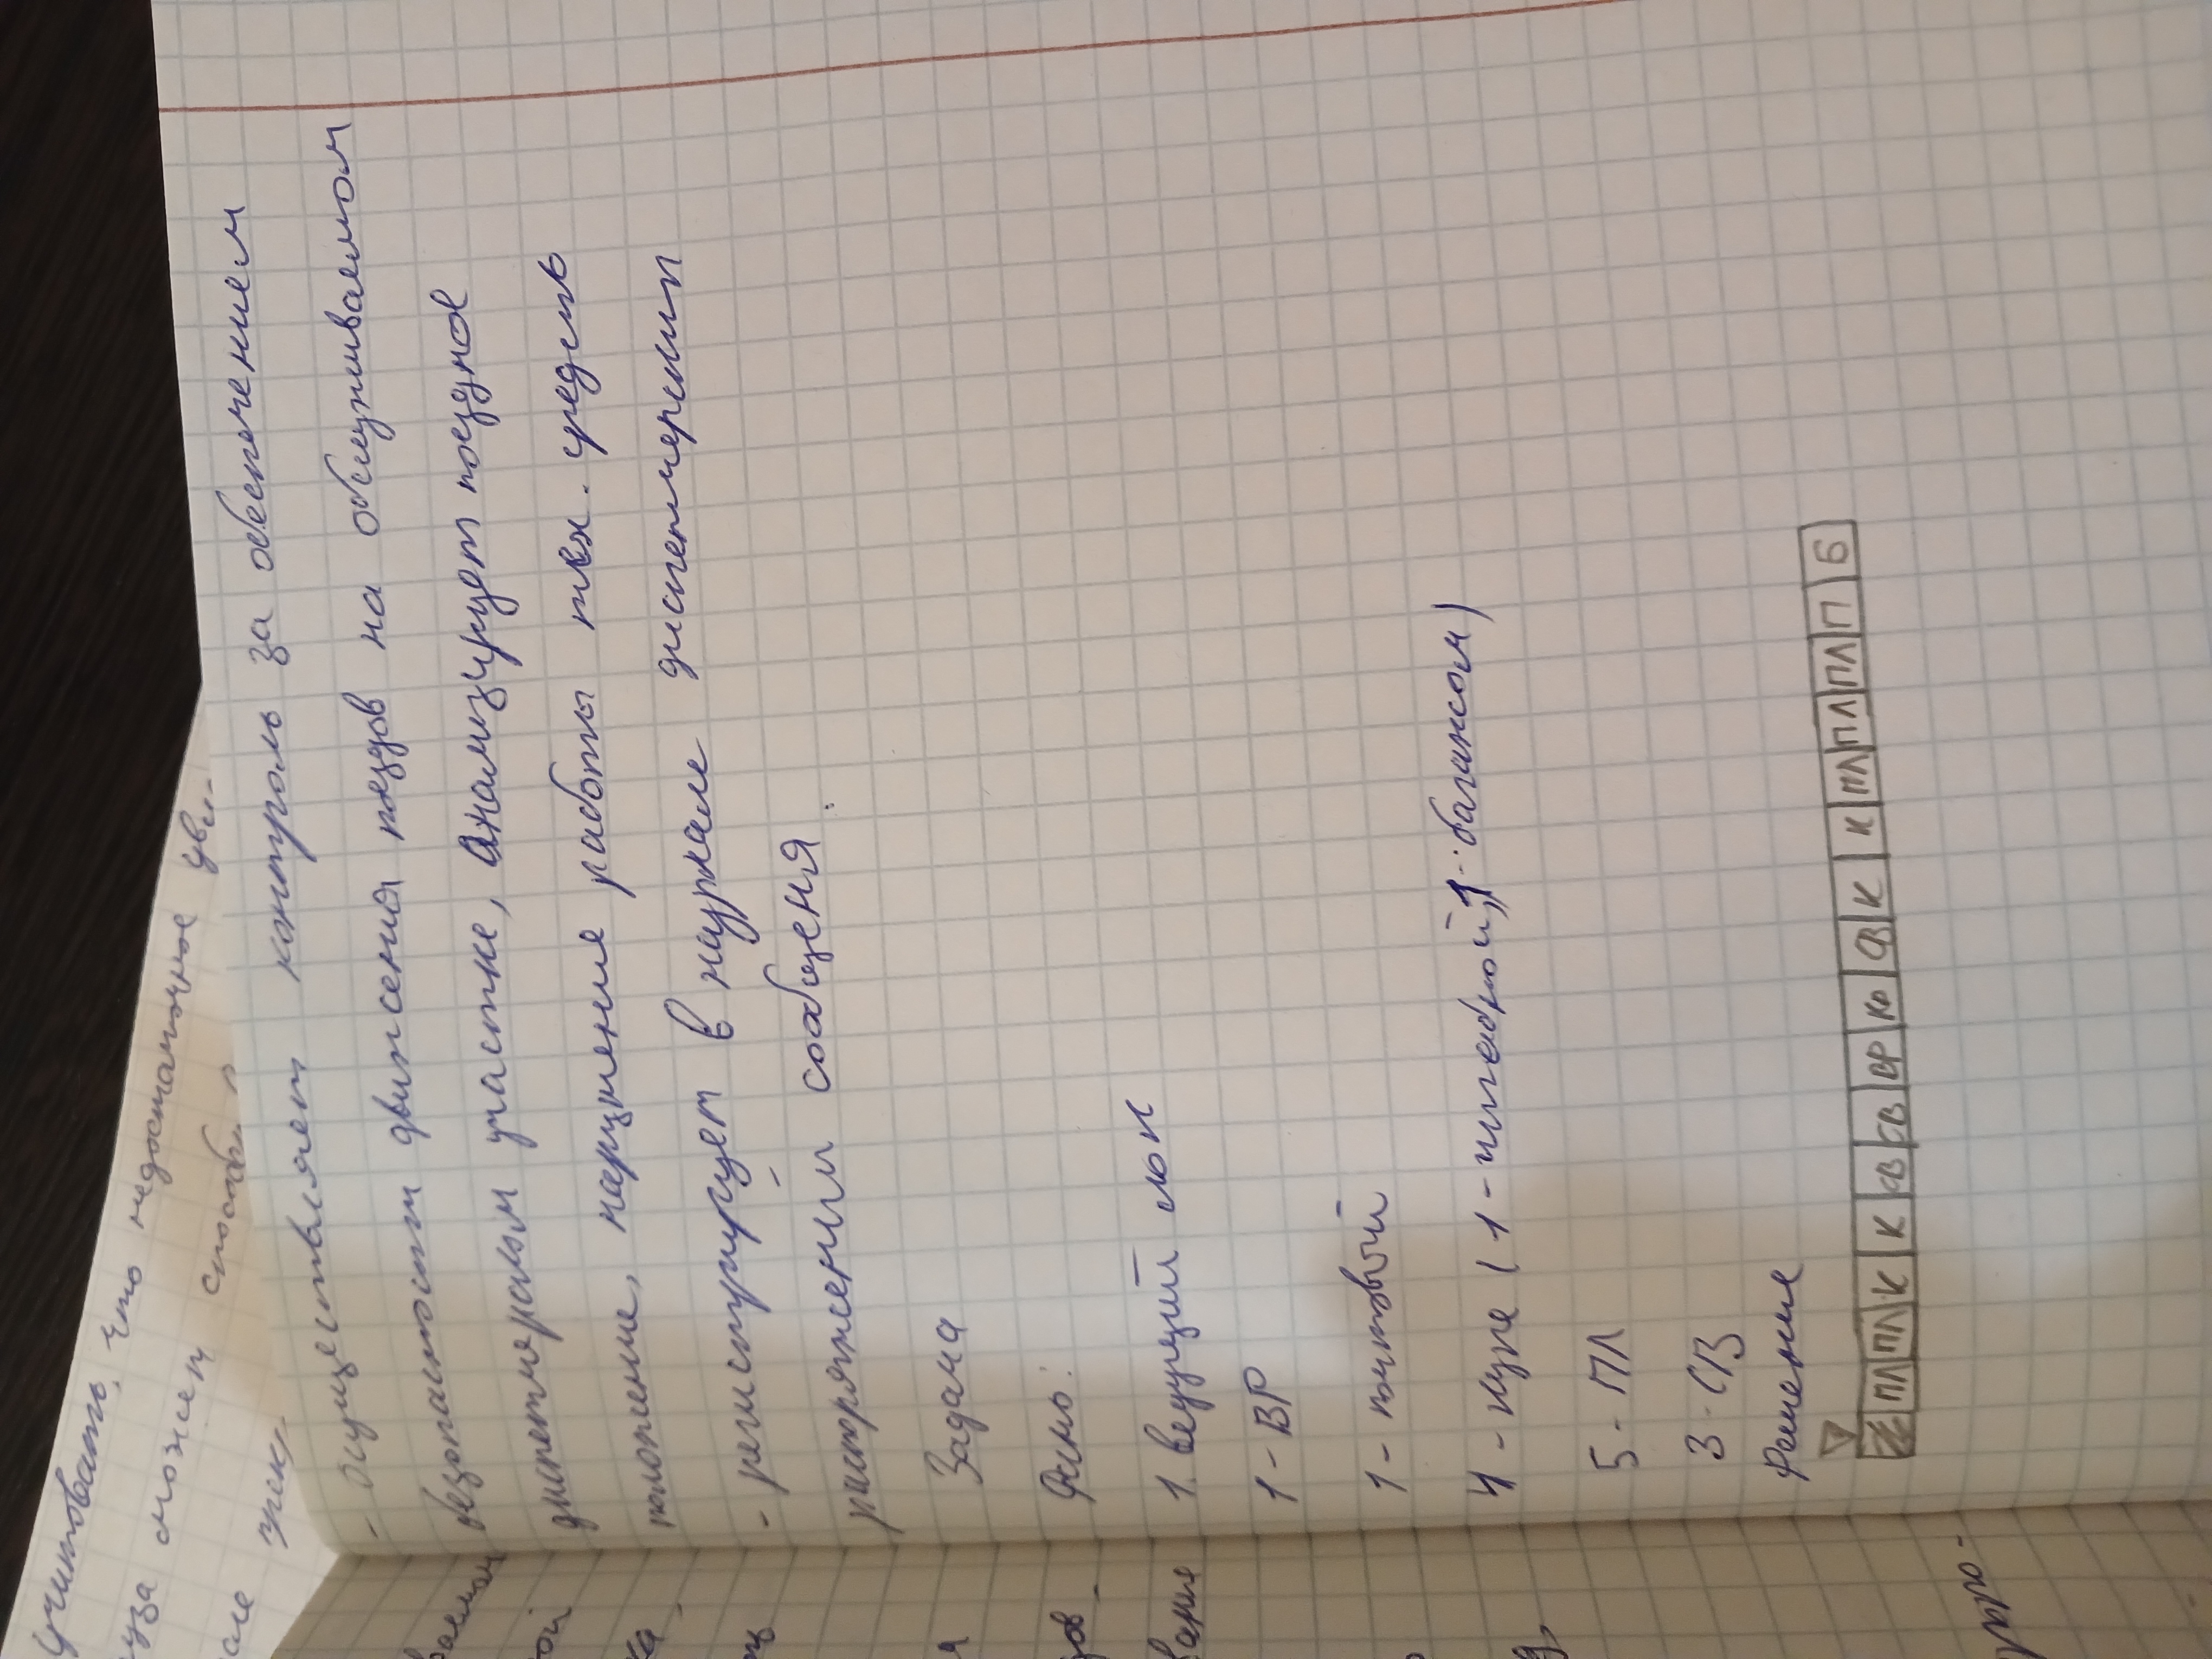 учитывать, что недостаточное уве-
может способ
- осуществляет контроль за обеспечением
безопасности движения поездов на обслуживаемом
диспетчерском участке, анализирует поездное
положение, нарушение работы тех. средств
- регистрирует в журнале диспетчерских
распоряжений сообщения.
Задача
Дано:
1. ведущий лок
1 - ВР
1 - почтовый
4 - купе (1 - штабной, 1 - багажом)
5 - ПЛ
3 - СВ
Решение
ПЛ ПЛ К К СВ СВ ВР СВ К К ПЛ ПЛ ПЛ П Б